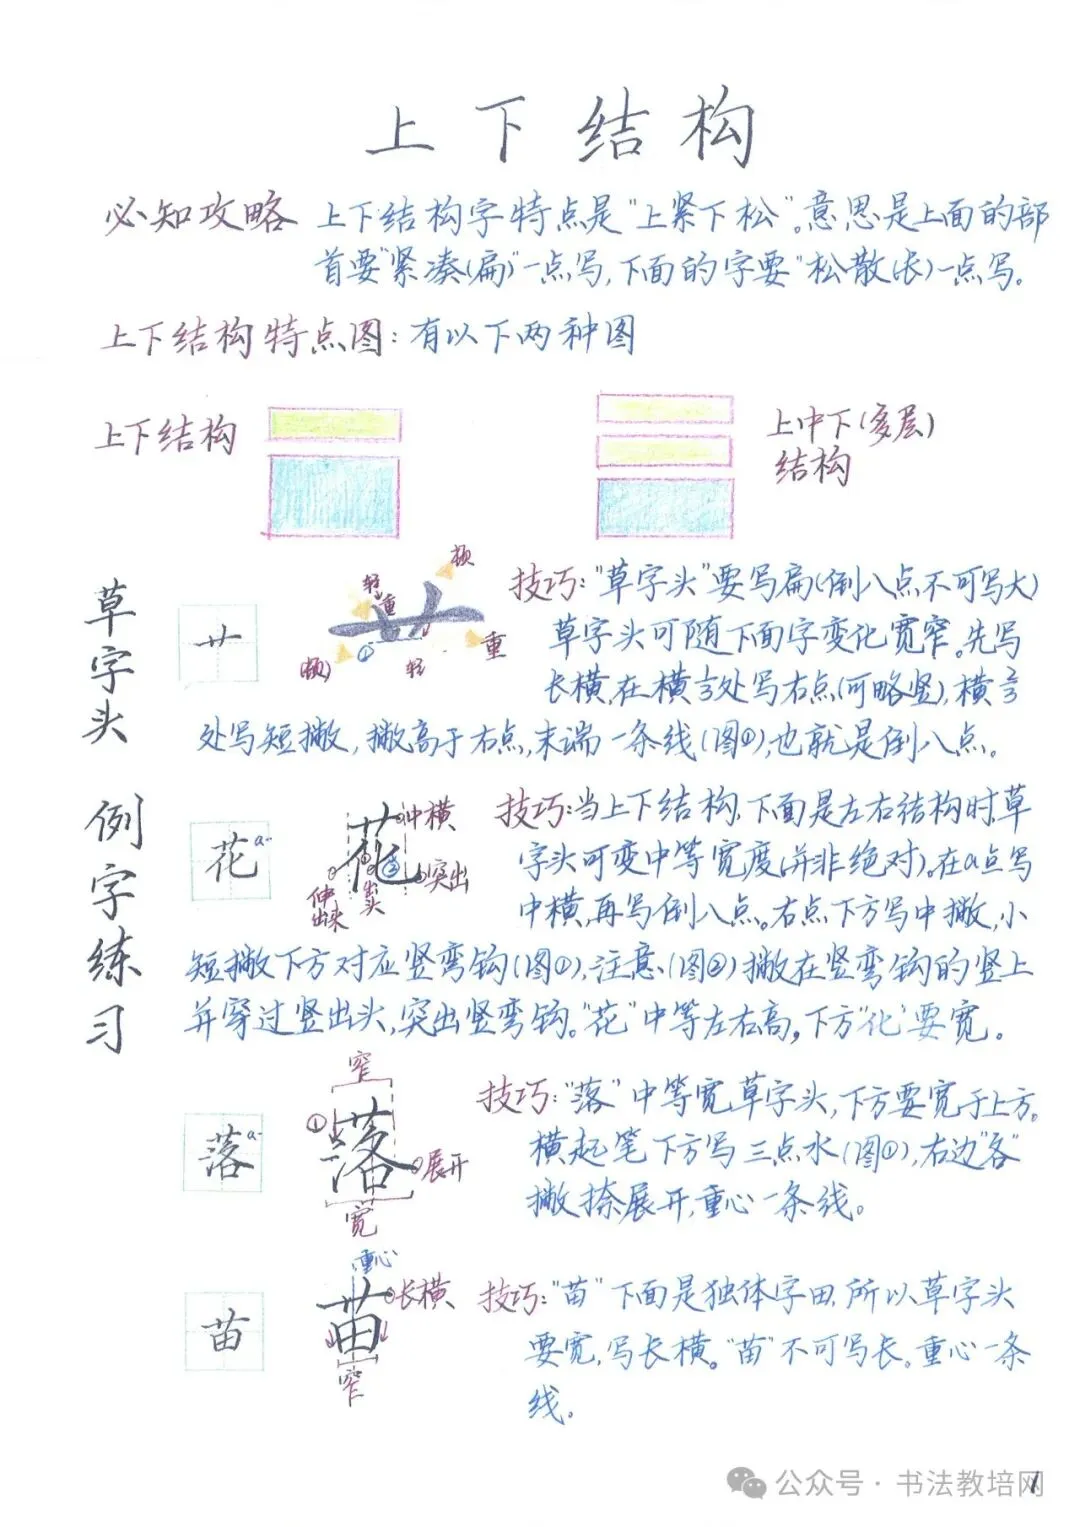 上下结构
必知攻略 上下结构字特点是“上紧下松”。意思是上面的部
首要“紧凑(扁)”一点写,下面的字要“松散(长)一点写。
上下结构特点图:有以下两种图
上下结构
上中下(多层)
结构
草字头
艹
轻
重
顿
(顿)
①
轻
重
技巧:“草字头”要写扁(倒八点不可写大)
草字头可随下面字变化宽窄。先写
长横,在横⅓处写右点(可略竖),横⅔
处写短撇,撇高于右点,末端一条线(图①),也就是倒八点。
例字练习
花 a
花
中横
①
②
突出
伸出来
出头
技巧:当上下结构,下面是左右结构时,草
字头可变中等宽度(并非绝对)。在a点写
中横,再写倒八点。右点下方写中撇,小
短撇下方对应竖弯钩(图①),注意(图②)撇在竖弯钩的竖上
并穿过竖出头,突出竖弯钩。“花”中等左右高,下方“化”要宽。
落 a
窄
①
落
展开
宽
技巧:“落”中等宽草字头,下方要宽于上方。
横起笔下方写三点水(图①),右边“各”
撇捺展开,重心一条线。
苗
重心
苗
长横
窄
技巧:“苗”下面是独体字田,所以草字头
要宽,写长横。“苗”不可写长。重心一条
线。
公众号·书法教培网
1